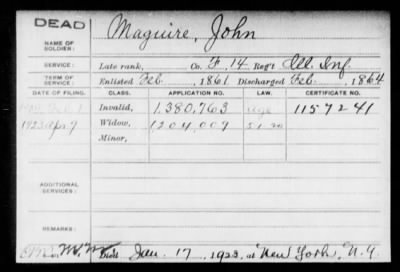 DEAD
NAME OF SOLDIER: Maguire, John
SERVICE: Late rank, Co. F, 14 Reg't Ill. Inf.
TERM OF SERVICE: Enlisted Feb. , 1861 Discharged Feb. , 1864
DATE OF FILING. CLASS. APPLICATION NO. LAW. CERTIFICATE NO.
Invalid, 1.380.763 age 1157241
1923 Apr 9 Widow, 1204.009
Minor,
ADDITIONAL SERVICES:
REMARKS:
Died Jan. 17, 1923, at New York, N.Y.